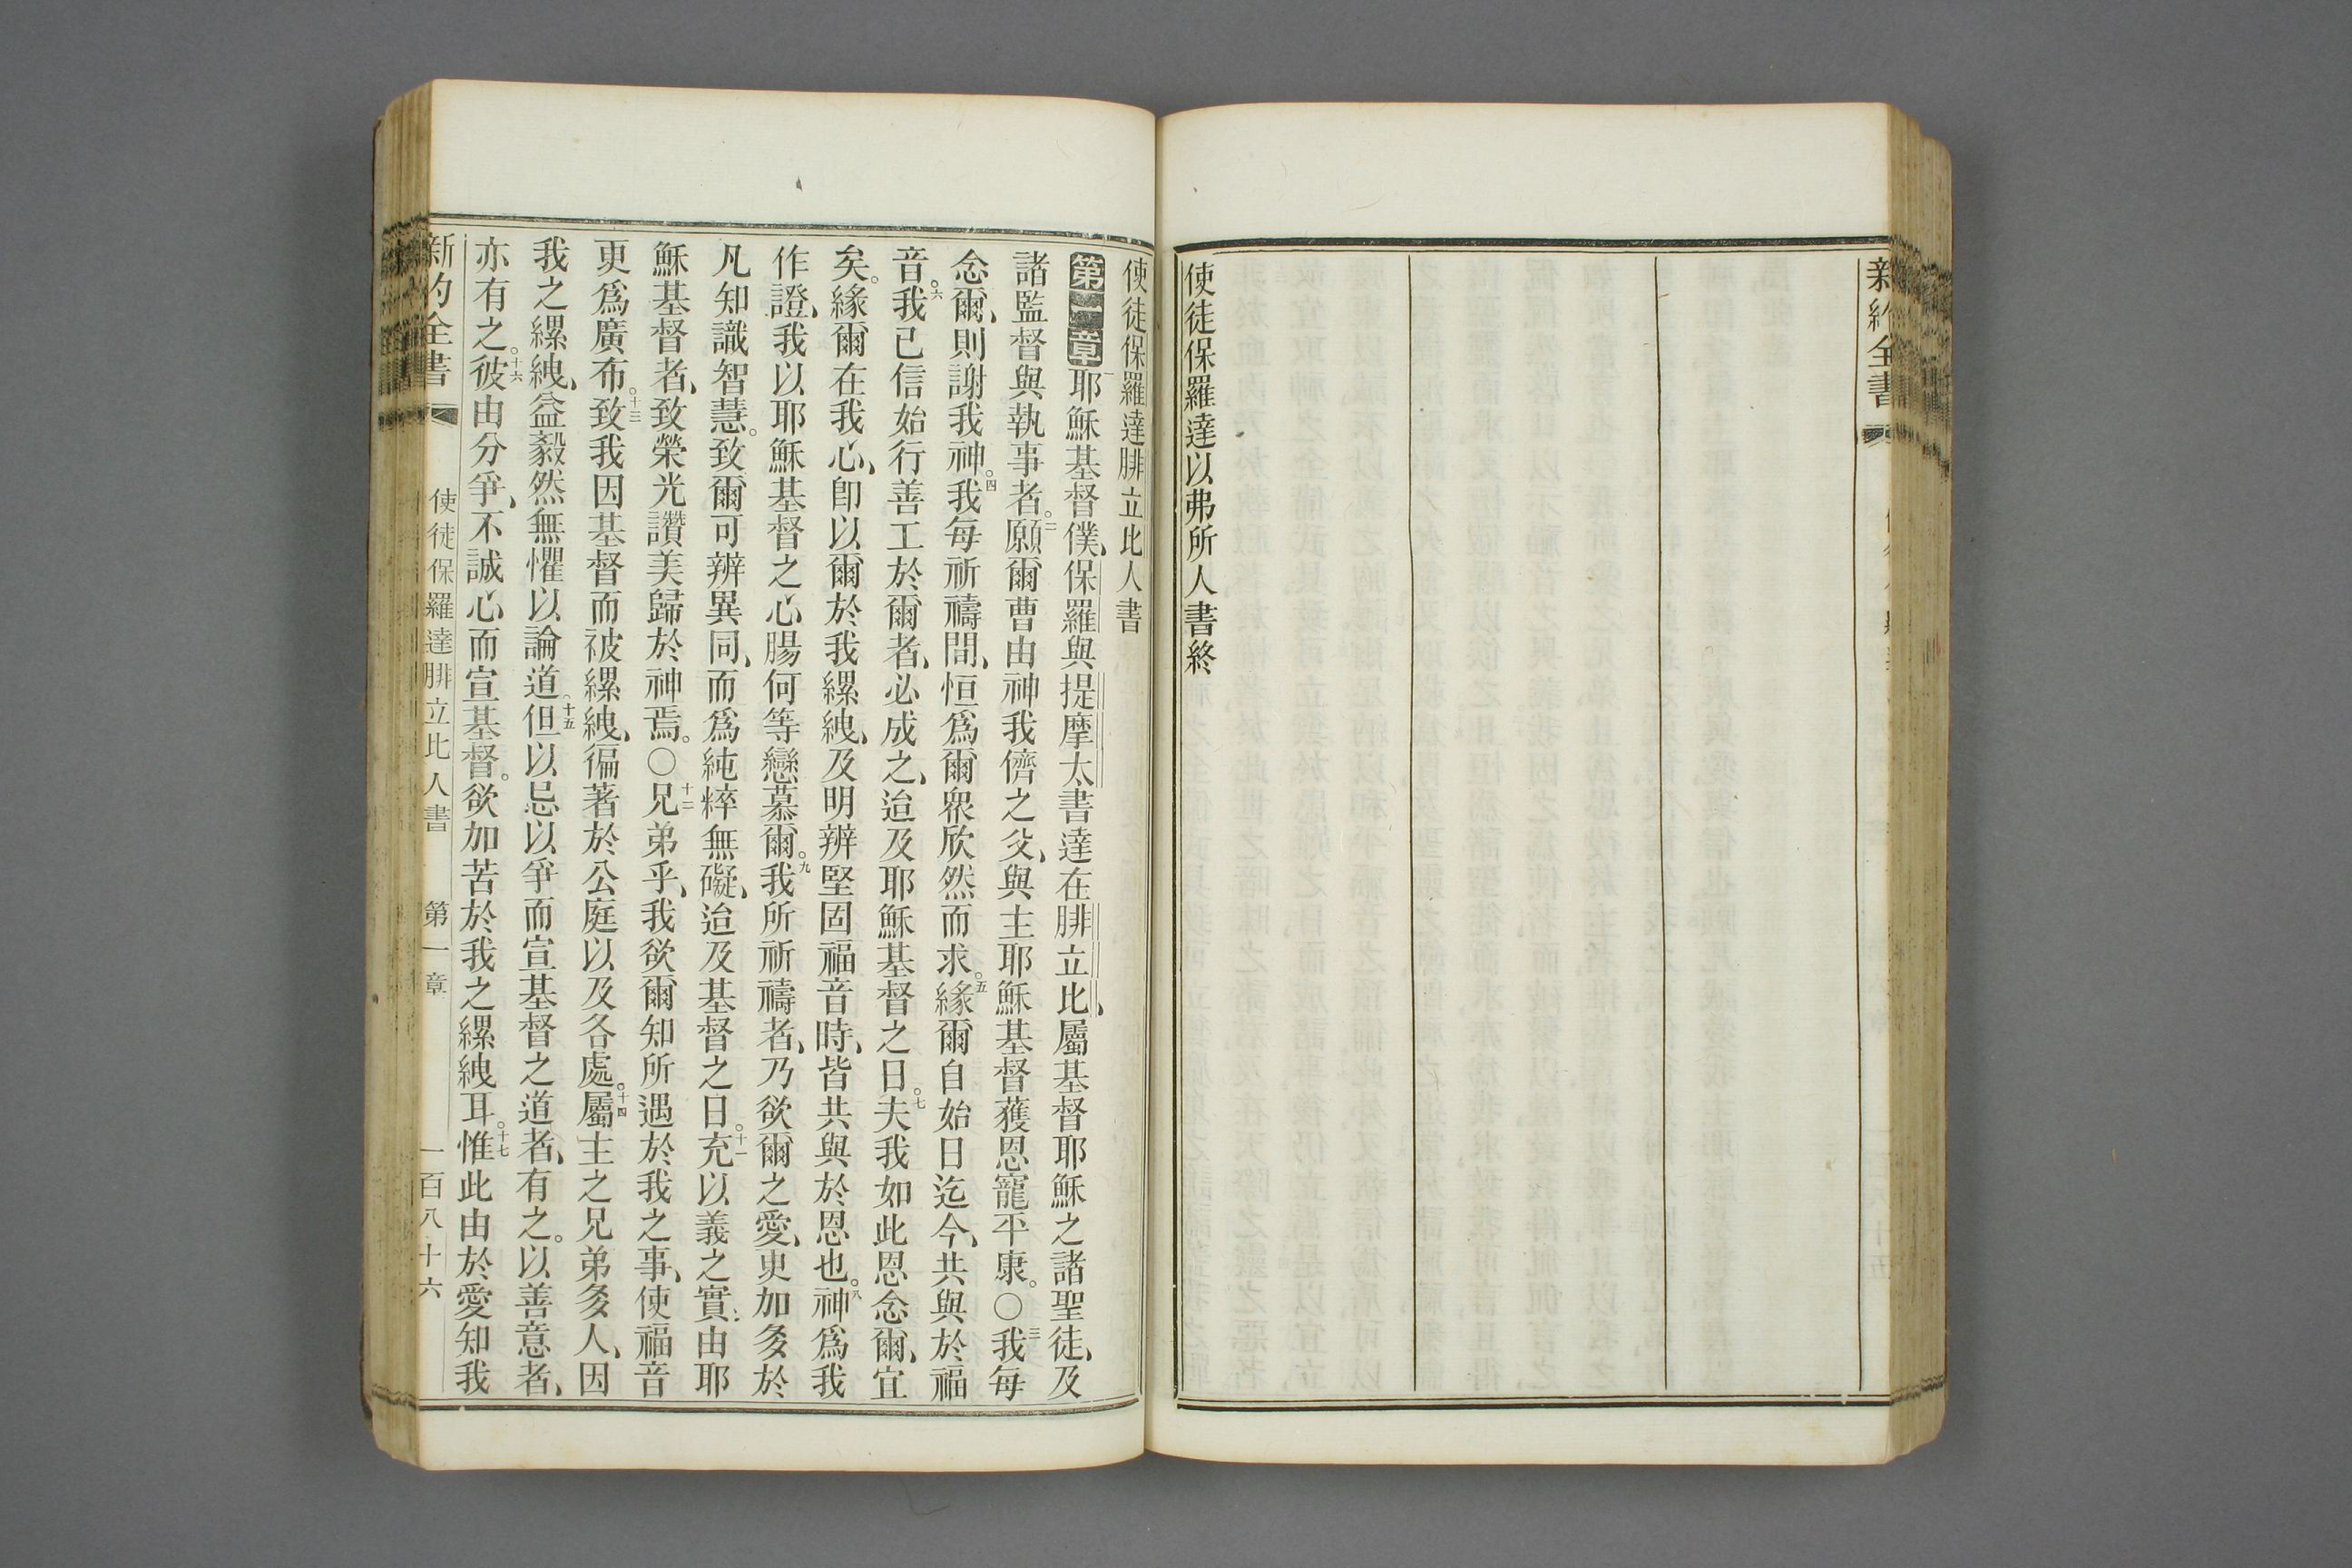 新約全書
使徒保羅達以弗所人書終
使徒保羅達腓立比人書
第一章一耶穌基督僕、保羅與提摩太書達在腓立比、屬基督耶穌之諸聖徒、及
諸監督與執事者。二願爾曹由神我儕之父、與主耶穌基督獲恩寵平康。〇三我每
念爾、則謝我神。四我每祈禱間、恒爲爾衆欣然而求。五緣爾自始日迄今、共與於福
音。六我已信始行善工於爾者、必成之、迨及耶穌基督之日。七夫我如此恩念爾、宜
矣。緣爾在我心、卽以爾於我縲絏、及明辨堅固福音時、皆共與於恩也。八神爲我
作證、我以耶穌基督之心腸何等戀慕爾。九我所祈禱者、乃欲爾之愛、更加多於
凡知識智慧。致爾可辨異同、而爲純粹無礙、迨及基督之日。十一充以義之實、由耶
穌基督者、致榮光讚美歸於神焉。〇十二兄弟乎、我欲爾知所遇於我之事、使福音
更爲廣布。十三致我因基督而被縲絏、徧著於公庭以及各處。十四屬主之兄弟多人、因
我之縲絏、益毅然無懼以論道。十五但以忌以爭而宣基督之道者、有之。以善意者、
亦有之。十六彼由分爭、不誠心而宣基督。欲加苦於我之縲絏耳。十七惟此由於愛知我
新約全書 使徒保羅達腓立比人書 第一章 一百八十六